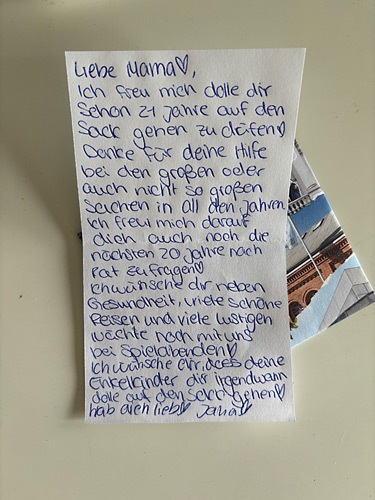 Liebe Mama♡,
Ich freu mich dolle dir
schon 21 Jahre auf den
Sack gehen zu düfen♡
Danke für deine Hilfe
bei den großen oder
auch nicht so großen
Sachen in all den Jahren
Ich freu mich darauf
dich auch noch die
nächsten 20 Jahre nach
Rat zu fragen♡
Ich wünsche dir neben
Gesundheit, viele schöne
Reisen und viele lustigen
Nächte noch mit uns
bei Spielabenden♡
Ich wünsche dir, dass deine
Enkelkinder dir irgendwann
dolle auf den Sack gehen♡
hab dich lieb♡ Jana♡